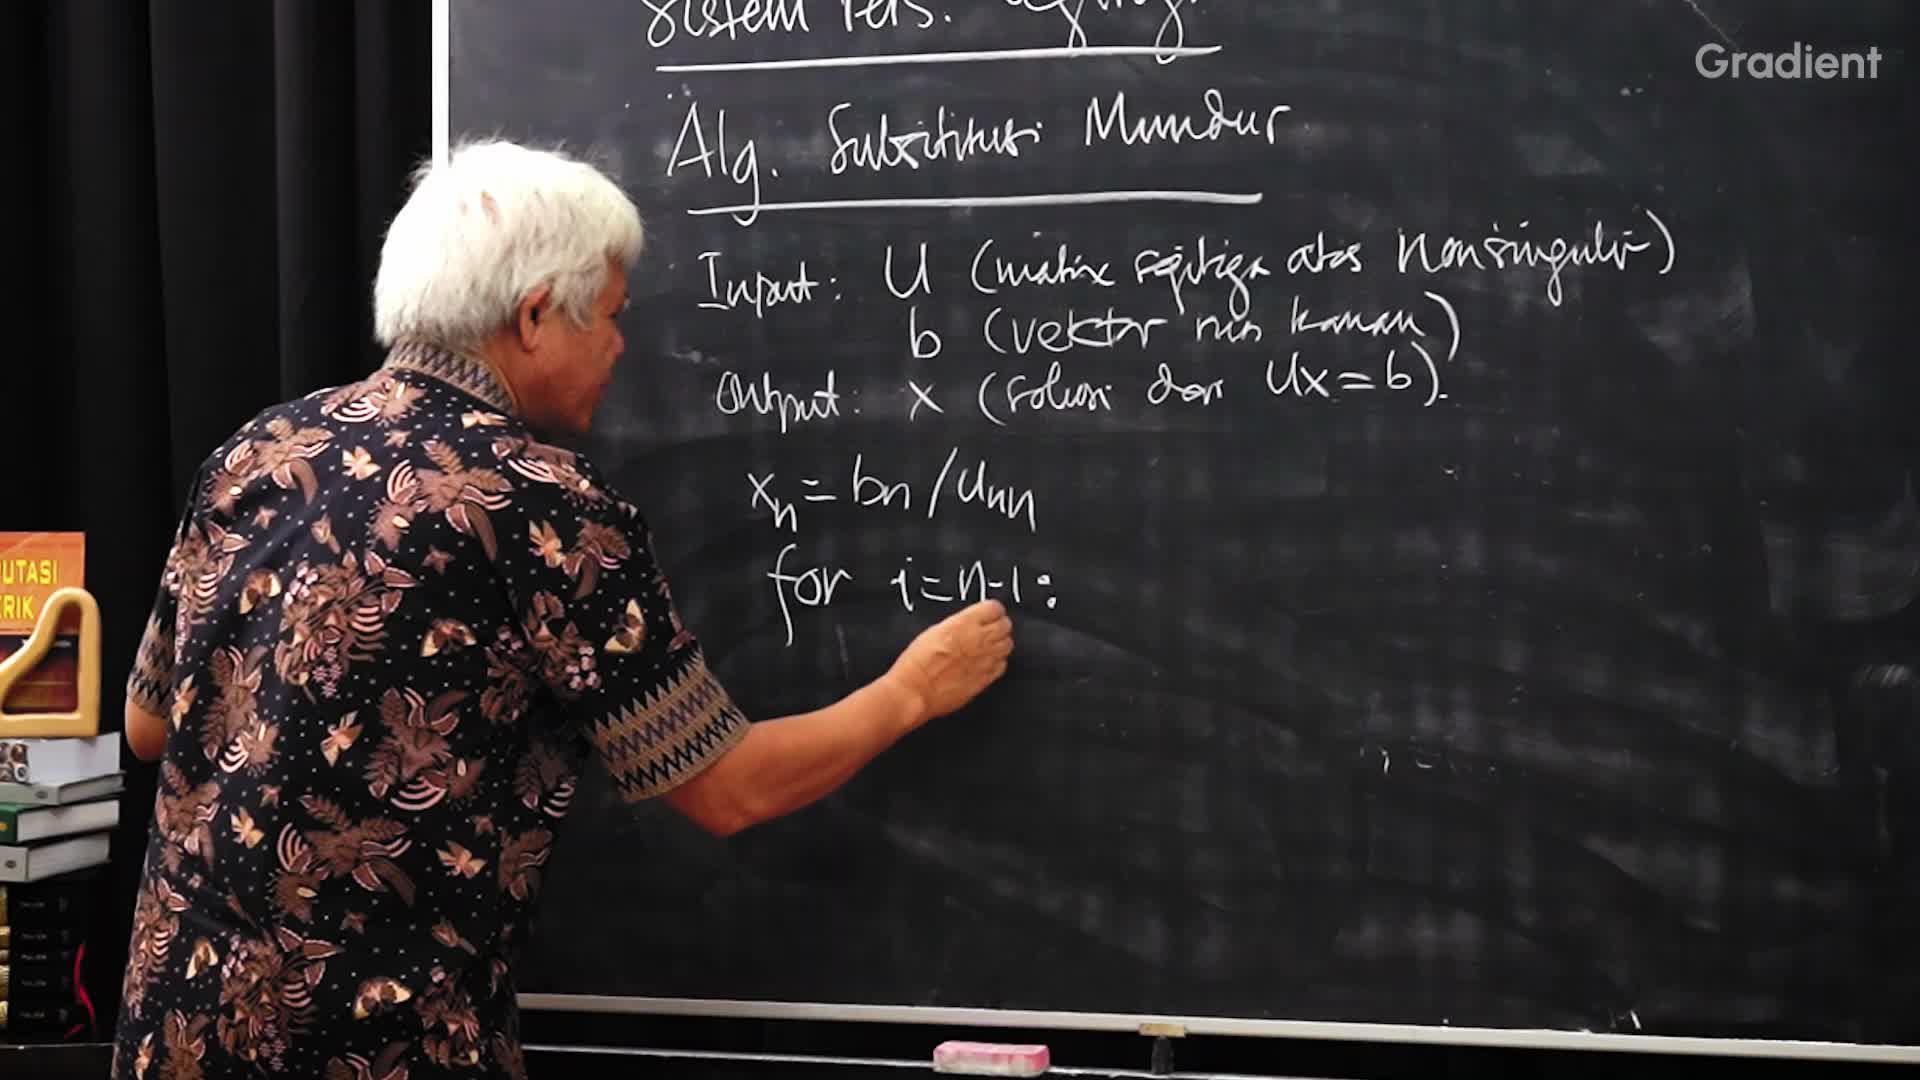 Sistem Pers.
Gradient
Alg. Substitusi Mundur
Input: U (matrix segitiga atas nonsingulir)
b (vektor ruas kanan)
Output: x (solusi dari Ux=b).
xn = bn/unn
for i=n-1:
UTASI
ERIK